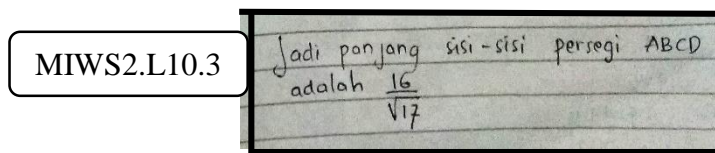 MIWS2.L10.3
Jadi panjang sisi-sisi persegi ABCD
adalah 16/√17